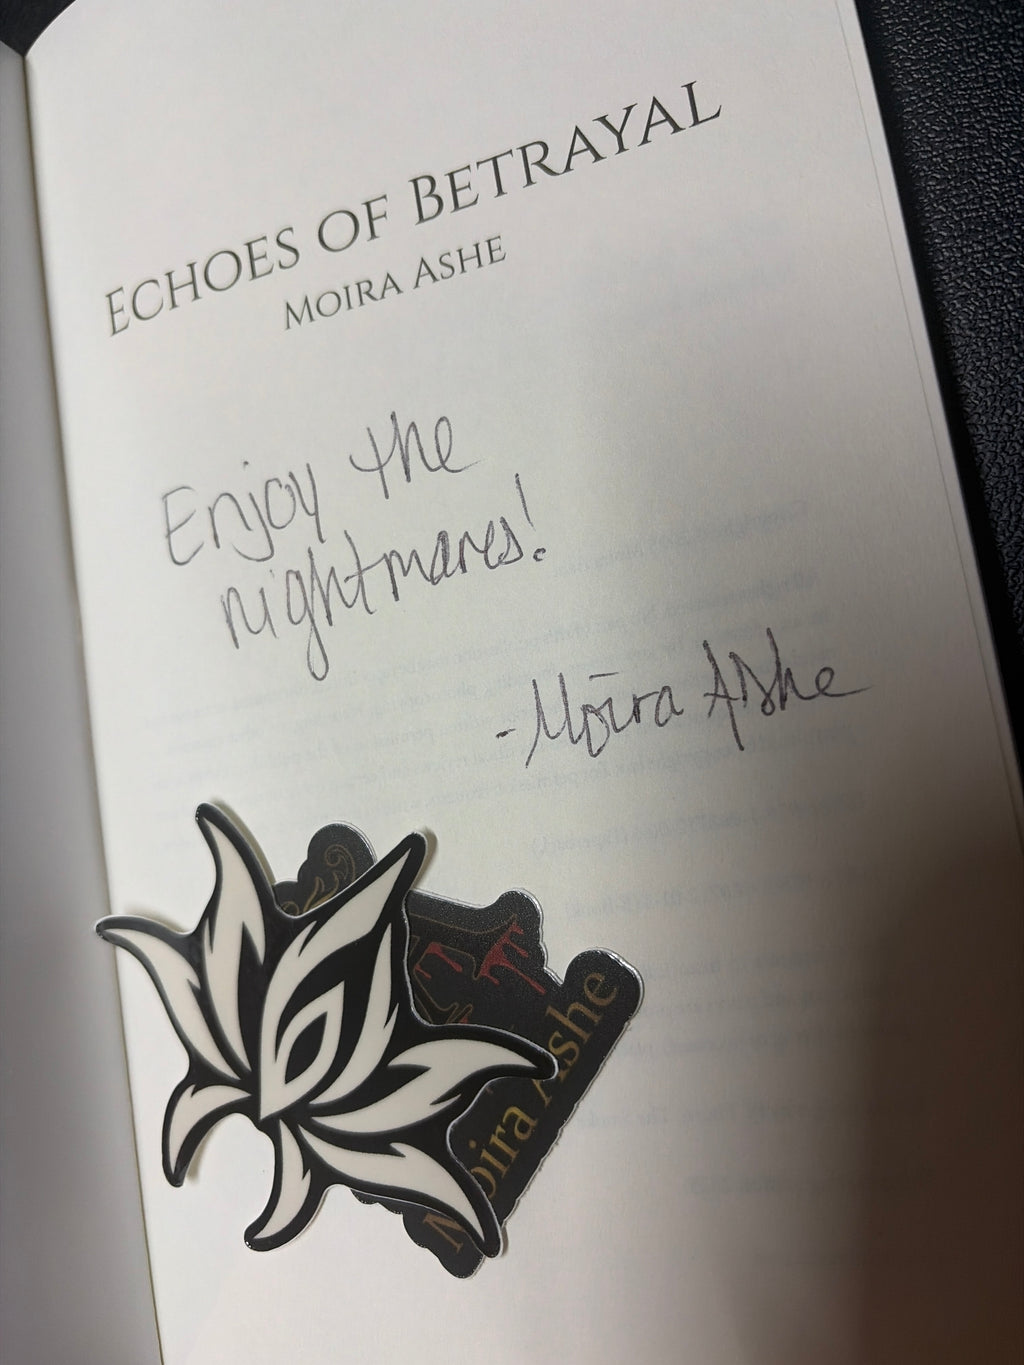 ECHOES OF BETRAYAL
MOIRA ASHE
Enjoy the
nightmares!
-Moira Ashe
Moira Ashe